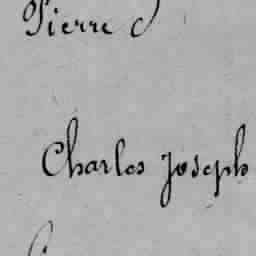 Pierre
Charles Joseph